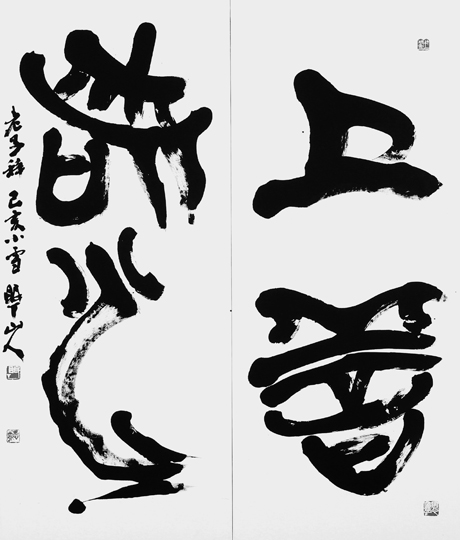 上善
若水
老子 己亥小雪 山人